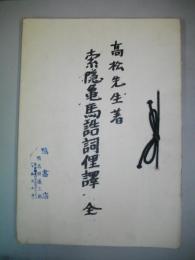 高松先生著
索隠亀馬誥詞俚譯 全